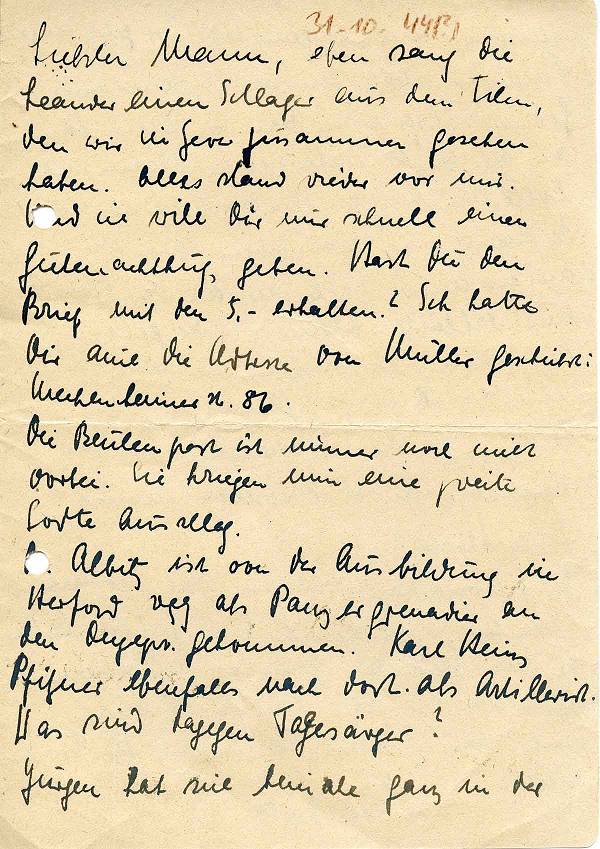 31.10.44
Liebster Mann, eben sang die
Leander einen Schlager aus dem Film,
den wir in Gera zusammen gesehen
haben. Alles stand wieder vor mir.
Und ich will Dir nur schnell einen
Gutenachtkuß geben. Hast Du den
Brief mit den 5,- erhalten? Ich hatte
Dir auch die Adresse von Müller geschickt:
str. 86.
Die ist immer noch nicht
vorbei. Sie kriegen nun eine zweite
Ausschlag.
Albitz ist von der Ausbildung in
Herford weg als Panzergrenadier an
den gekommen. Karl Heinz
ebenfalls nach dort als Artillerist.
Was sind dagegen Tagesärger?
Jürgen hat sich beinahe ganz in der